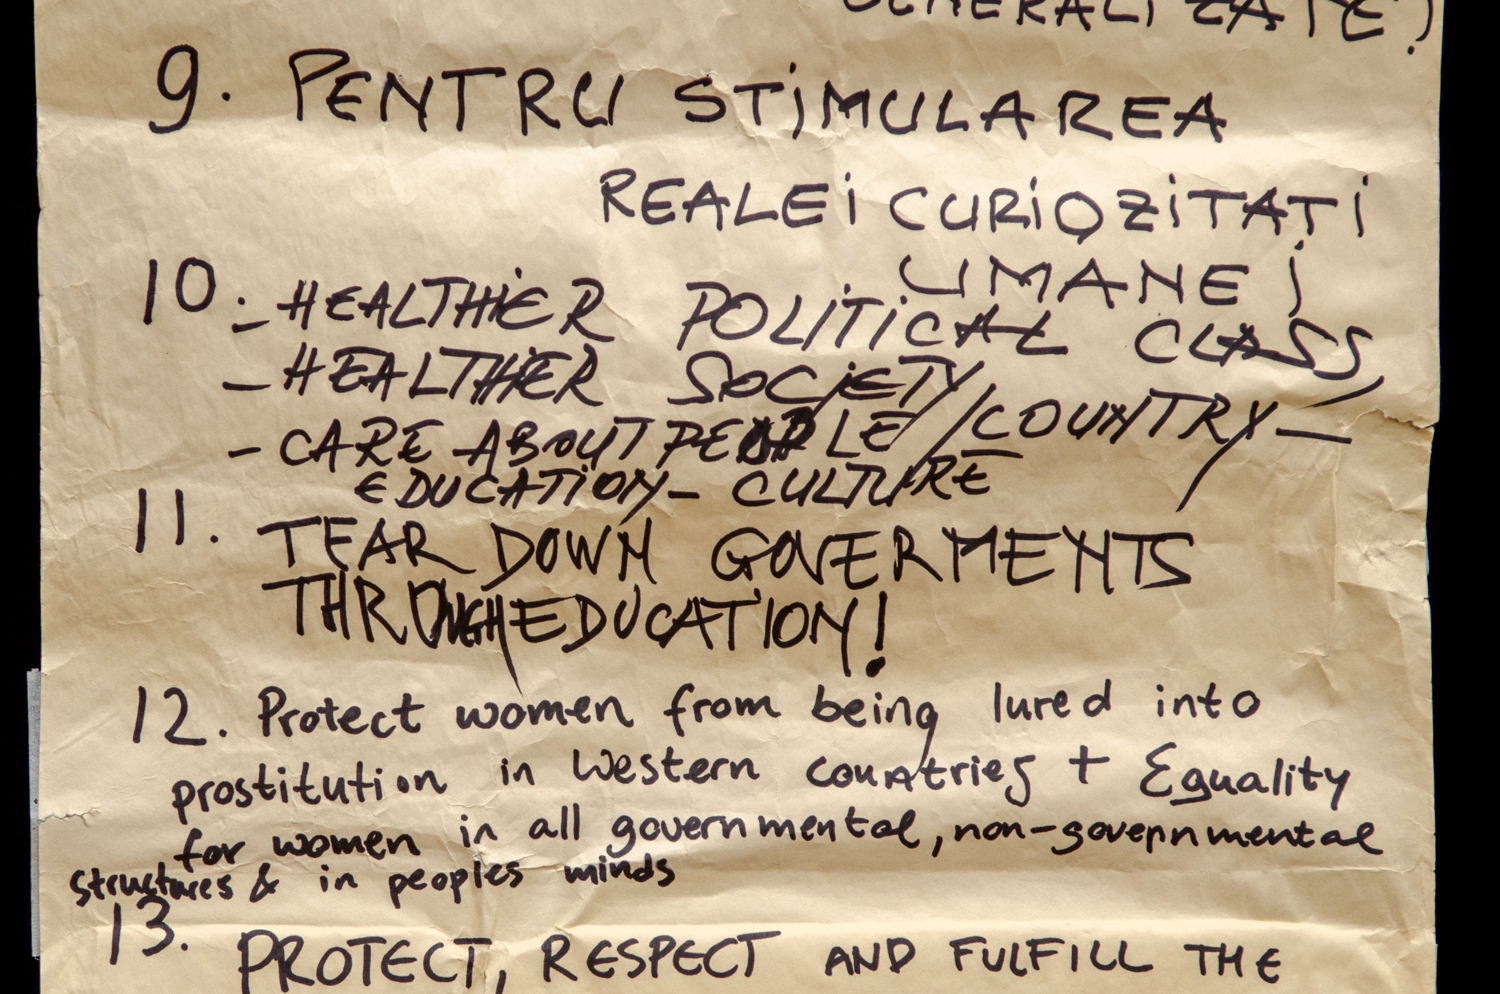 GENERALIZATE!
9. PENTRU STIMULAREA
REALEI CURIOZITATI
UMANE
10. - HEALTHIER POLITICAL CLASS,
- HEALTHIER SOCIETY
- CARE ABOUT PEOPLE/COUNTRY -
EDUCATION - CULTURE
11. TEAR DOWN GOVERMENTS
THROUGH EDUCATION!
12. Protect women from being lured into
prostitution in Western countries + Equality
for women in all governmental, non-governmental
structures & in peoples minds
13. PROTECT, RESPECT AND FULFILL THE